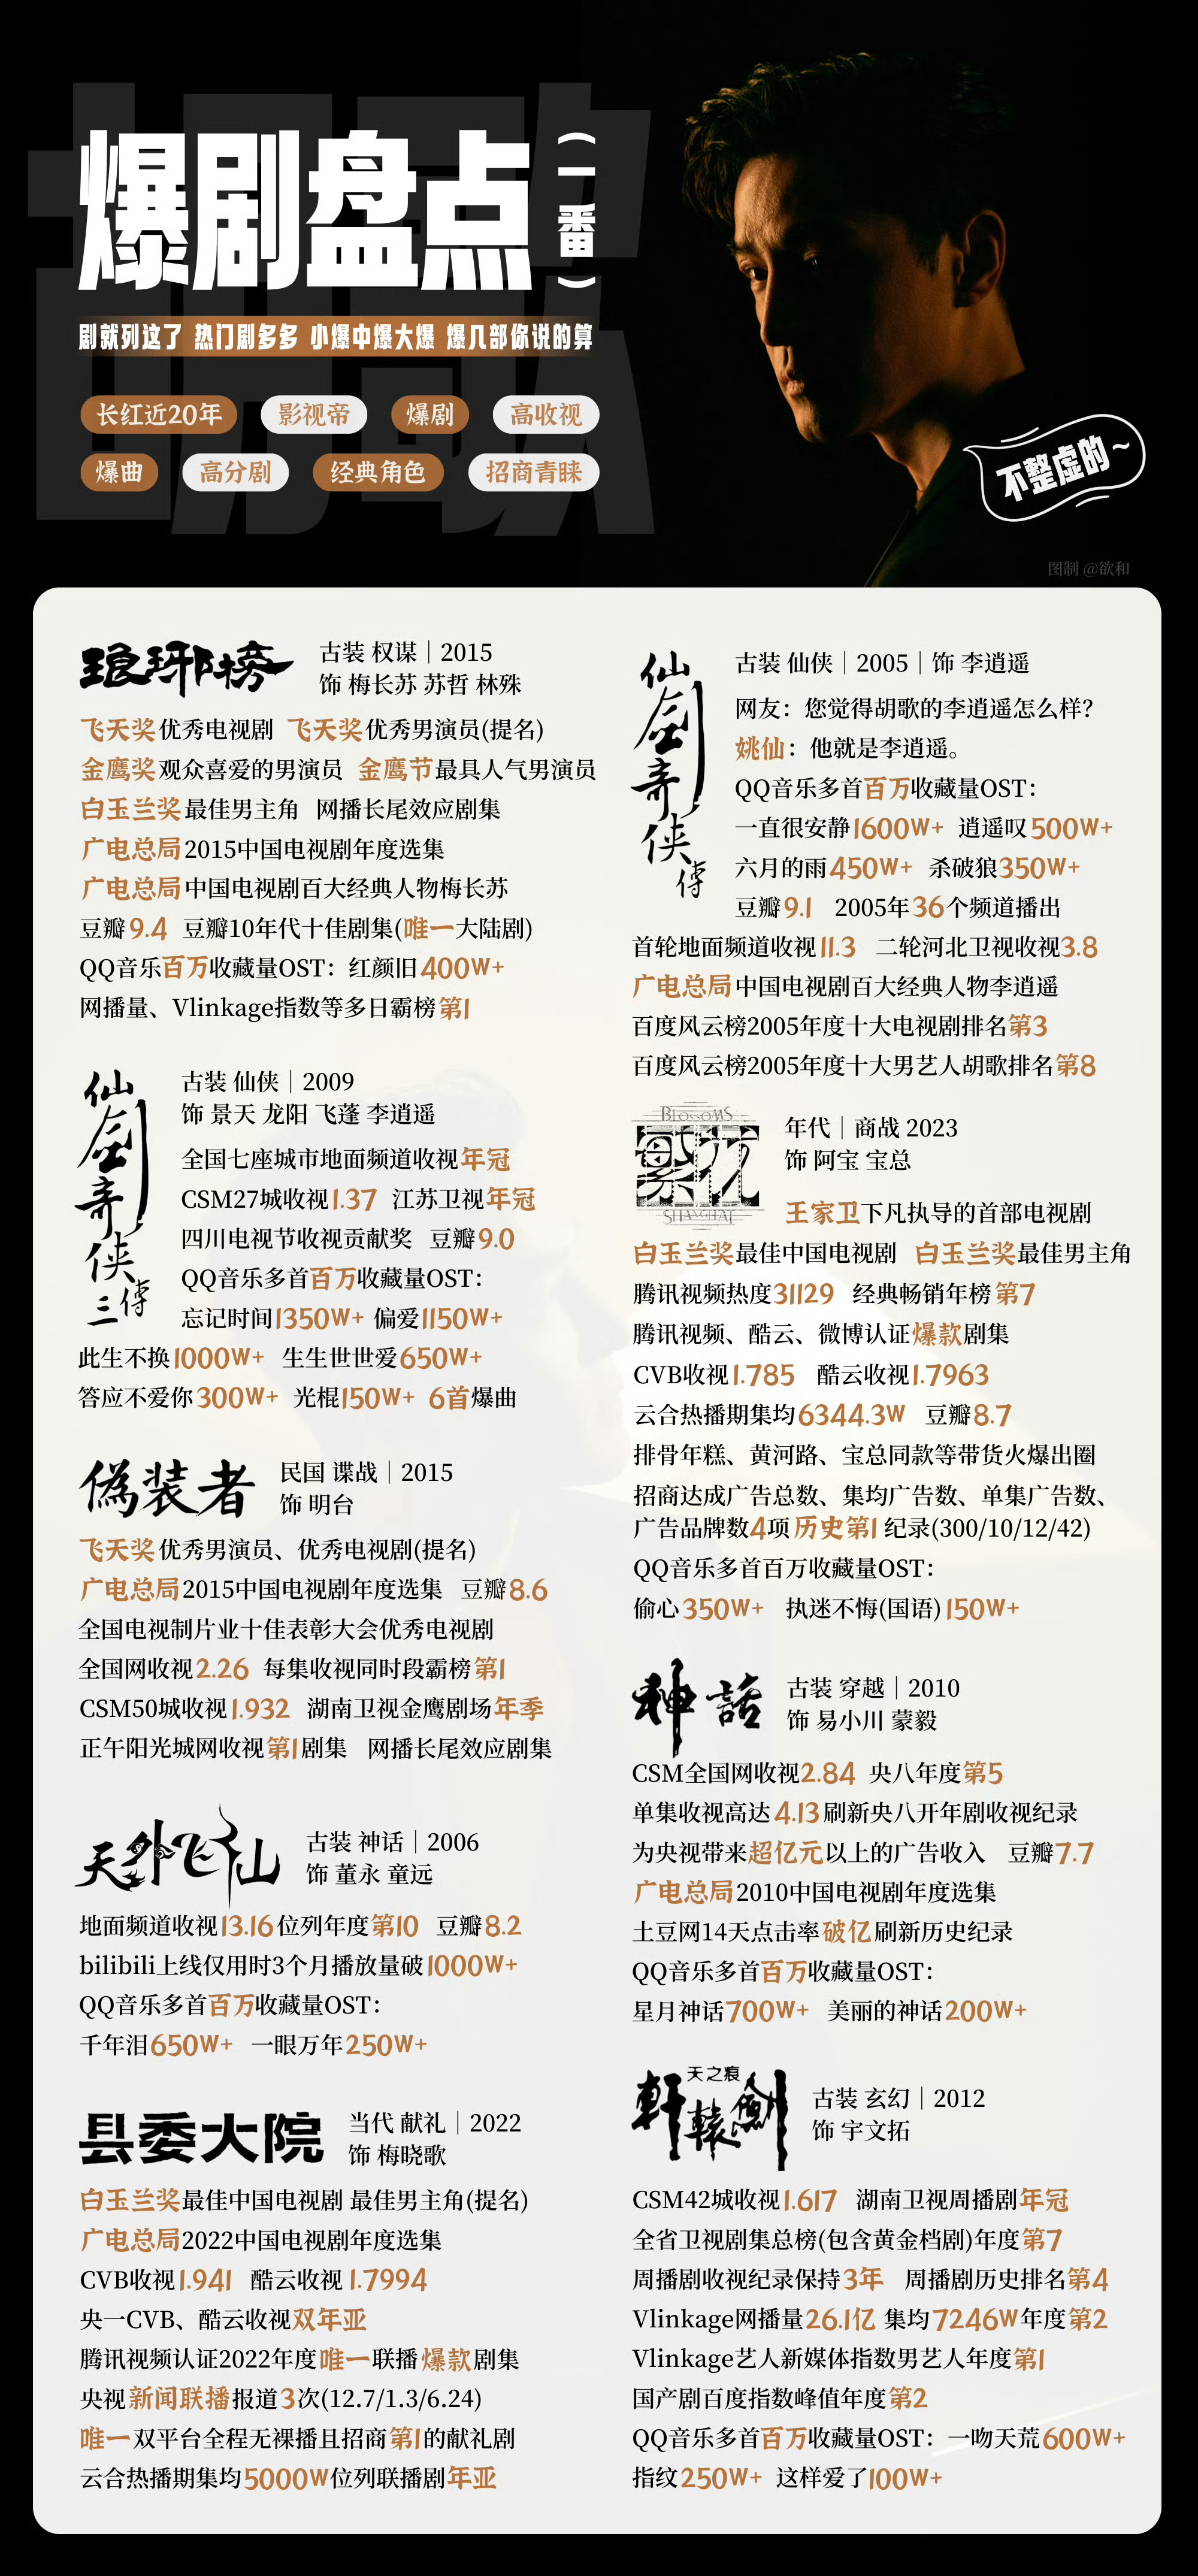 胡歌
爆剧盘点
(一番)
剧就列这了 热门剧多多 小爆中爆大爆 爆几部你说的算
长红近20年 影视帝 爆剧 高收视
爆曲 高分剧 经典角色 招商青睐
不整虚的~
图制 @欲和
琅琊榜
古装 权谋｜2015
饰 梅长苏 苏哲 林殊
飞天奖优秀电视剧 飞天奖优秀男演员(提名)
金鹰奖观众喜爱的男演员 金鹰节最具人气男演员
白玉兰奖最佳男主角 网播长尾效应剧集
广电总局2015中国电视剧年度选集
广电总局中国电视剧百大经典人物梅长苏
豆瓣9.4 豆瓣10年代十佳剧集(唯一大陆剧)
QQ音乐百万收藏量OST：红颜旧400W+
网播量、Vlinkage指数等多日霸榜第1
仙剑奇侠传三
古装 仙侠｜2009
饰 景天 龙阳 飞蓬 李逍遥
全国七座城市地面频道收视年冠
CSM27城收视1.37 江苏卫视年冠
四川电视节收视贡献奖 豆瓣9.0
QQ音乐多首百万收藏量OST：
忘记时间1350W+ 偏爱1150W+
此生不换1000W+ 生生世世爱650W+
答应不爱你300W+ 光棍150W+ 6首爆曲
偽装者
民国 谍战｜2015
饰 明台
飞天奖优秀男演员、优秀电视剧(提名)
广电总局2015中国电视剧年度选集 豆瓣8.6
全国电视制片业十佳表彰大会优秀电视剧
全国网收视2.26 每集收视同时段霸榜第1
CSM50城收视1.932 湖南卫视金鹰剧场年季
正午阳光城网收视第1剧集 网播长尾效应剧集
天外飞仙
古装 神话｜2006
饰 董永 童远
地面频道收视13.16位列年度第10 豆瓣8.2
bilibili上线仅用时3个月播放量破1000W+
QQ音乐多首百万收藏量OST：
千年泪650W+ 一眼万年250W+
县委大院
当代 献礼｜2022
饰 梅晓歌
白玉兰奖最佳中国电视剧 最佳男主角(提名)
广电总局2022中国电视剧年度选集
CVB收视1.941 酷云收视1.7994
央一CVB、酷云收视双年亚
腾讯视频认证2022年度唯一联播爆款剧集
央视新闻联播报道3次(12.7/1.3/6.24)
唯一双平台全程无裸播且招商第1的献礼剧
云合热播期集均5000W位列联播剧年亚
仙剑奇侠传
古装 仙侠｜2005｜饰 李逍遥
网友：您觉得胡歌的李逍遥怎么样？
姚仙：他就是李逍遥。
QQ音乐多首百万收藏量OST：
一直很安静1600W+ 逍遥叹500W+
六月的雨450W+ 杀破狼350W+
豆瓣9.1 2005年36个频道播出
首轮地面频道收视11.3 二轮河北卫视收视3.8
广电总局中国电视剧百大经典人物李逍遥
百度风云榜2005年度十大电视剧排名第3
百度风云榜2005年度十大男艺人胡歌排名第8
BLOSSOMS
繁花
SHANGHAI
年代｜商战 2023
饰 阿宝 宝总
王家卫下凡执导的首部电视剧
白玉兰奖最佳中国电视剧 白玉兰奖最佳男主角
腾讯视频热度31129 经典畅销年榜第7
腾讯视频、酷云、微博认证爆款剧集
CVB收视1.785 酷云收视1.7963
云合热播期集均6344.3W 豆瓣8.7
排骨年糕、黄河路、宝总同款等带货火爆出圈
招商达成广告总数、集均广告数、单集广告数、
广告品牌数4项历史第1纪录(300/10/12/42)
QQ音乐多首百万收藏量OST：
偷心350W+ 执迷不悔(国语)150W+
神話
古装 穿越｜2010
饰 易小川 蒙毅
CSM全国网收视2.84 央八年度第5
单集收视高达4.13刷新央八开年剧收视纪录
为央视带来超亿元以上的广告收入 豆瓣7.7
广电总局2010中国电视剧年度选集
土豆网14天点击率破亿刷新历史纪录
QQ音乐多首百万收藏量OST：
星月神话700W+ 美丽的神话200W+
軒轅劍
天之痕
古装 玄幻｜2012
饰 宇文拓
CSM42城收视1.617 湖南卫视周播剧年冠
全省卫视剧集总榜(包含黄金档剧)年度第7
周播剧收视纪录保持3年 周播剧历史排名第4
Vlinkage网播量26.1亿 集均7246W年度第2
Vlinkage艺人新媒体指数男艺人年度第1
国产剧百度指数峰值年度第2
QQ音乐多首百万收藏量OST：一吻天荒600W+
指纹250W+ 这样爱了100W+